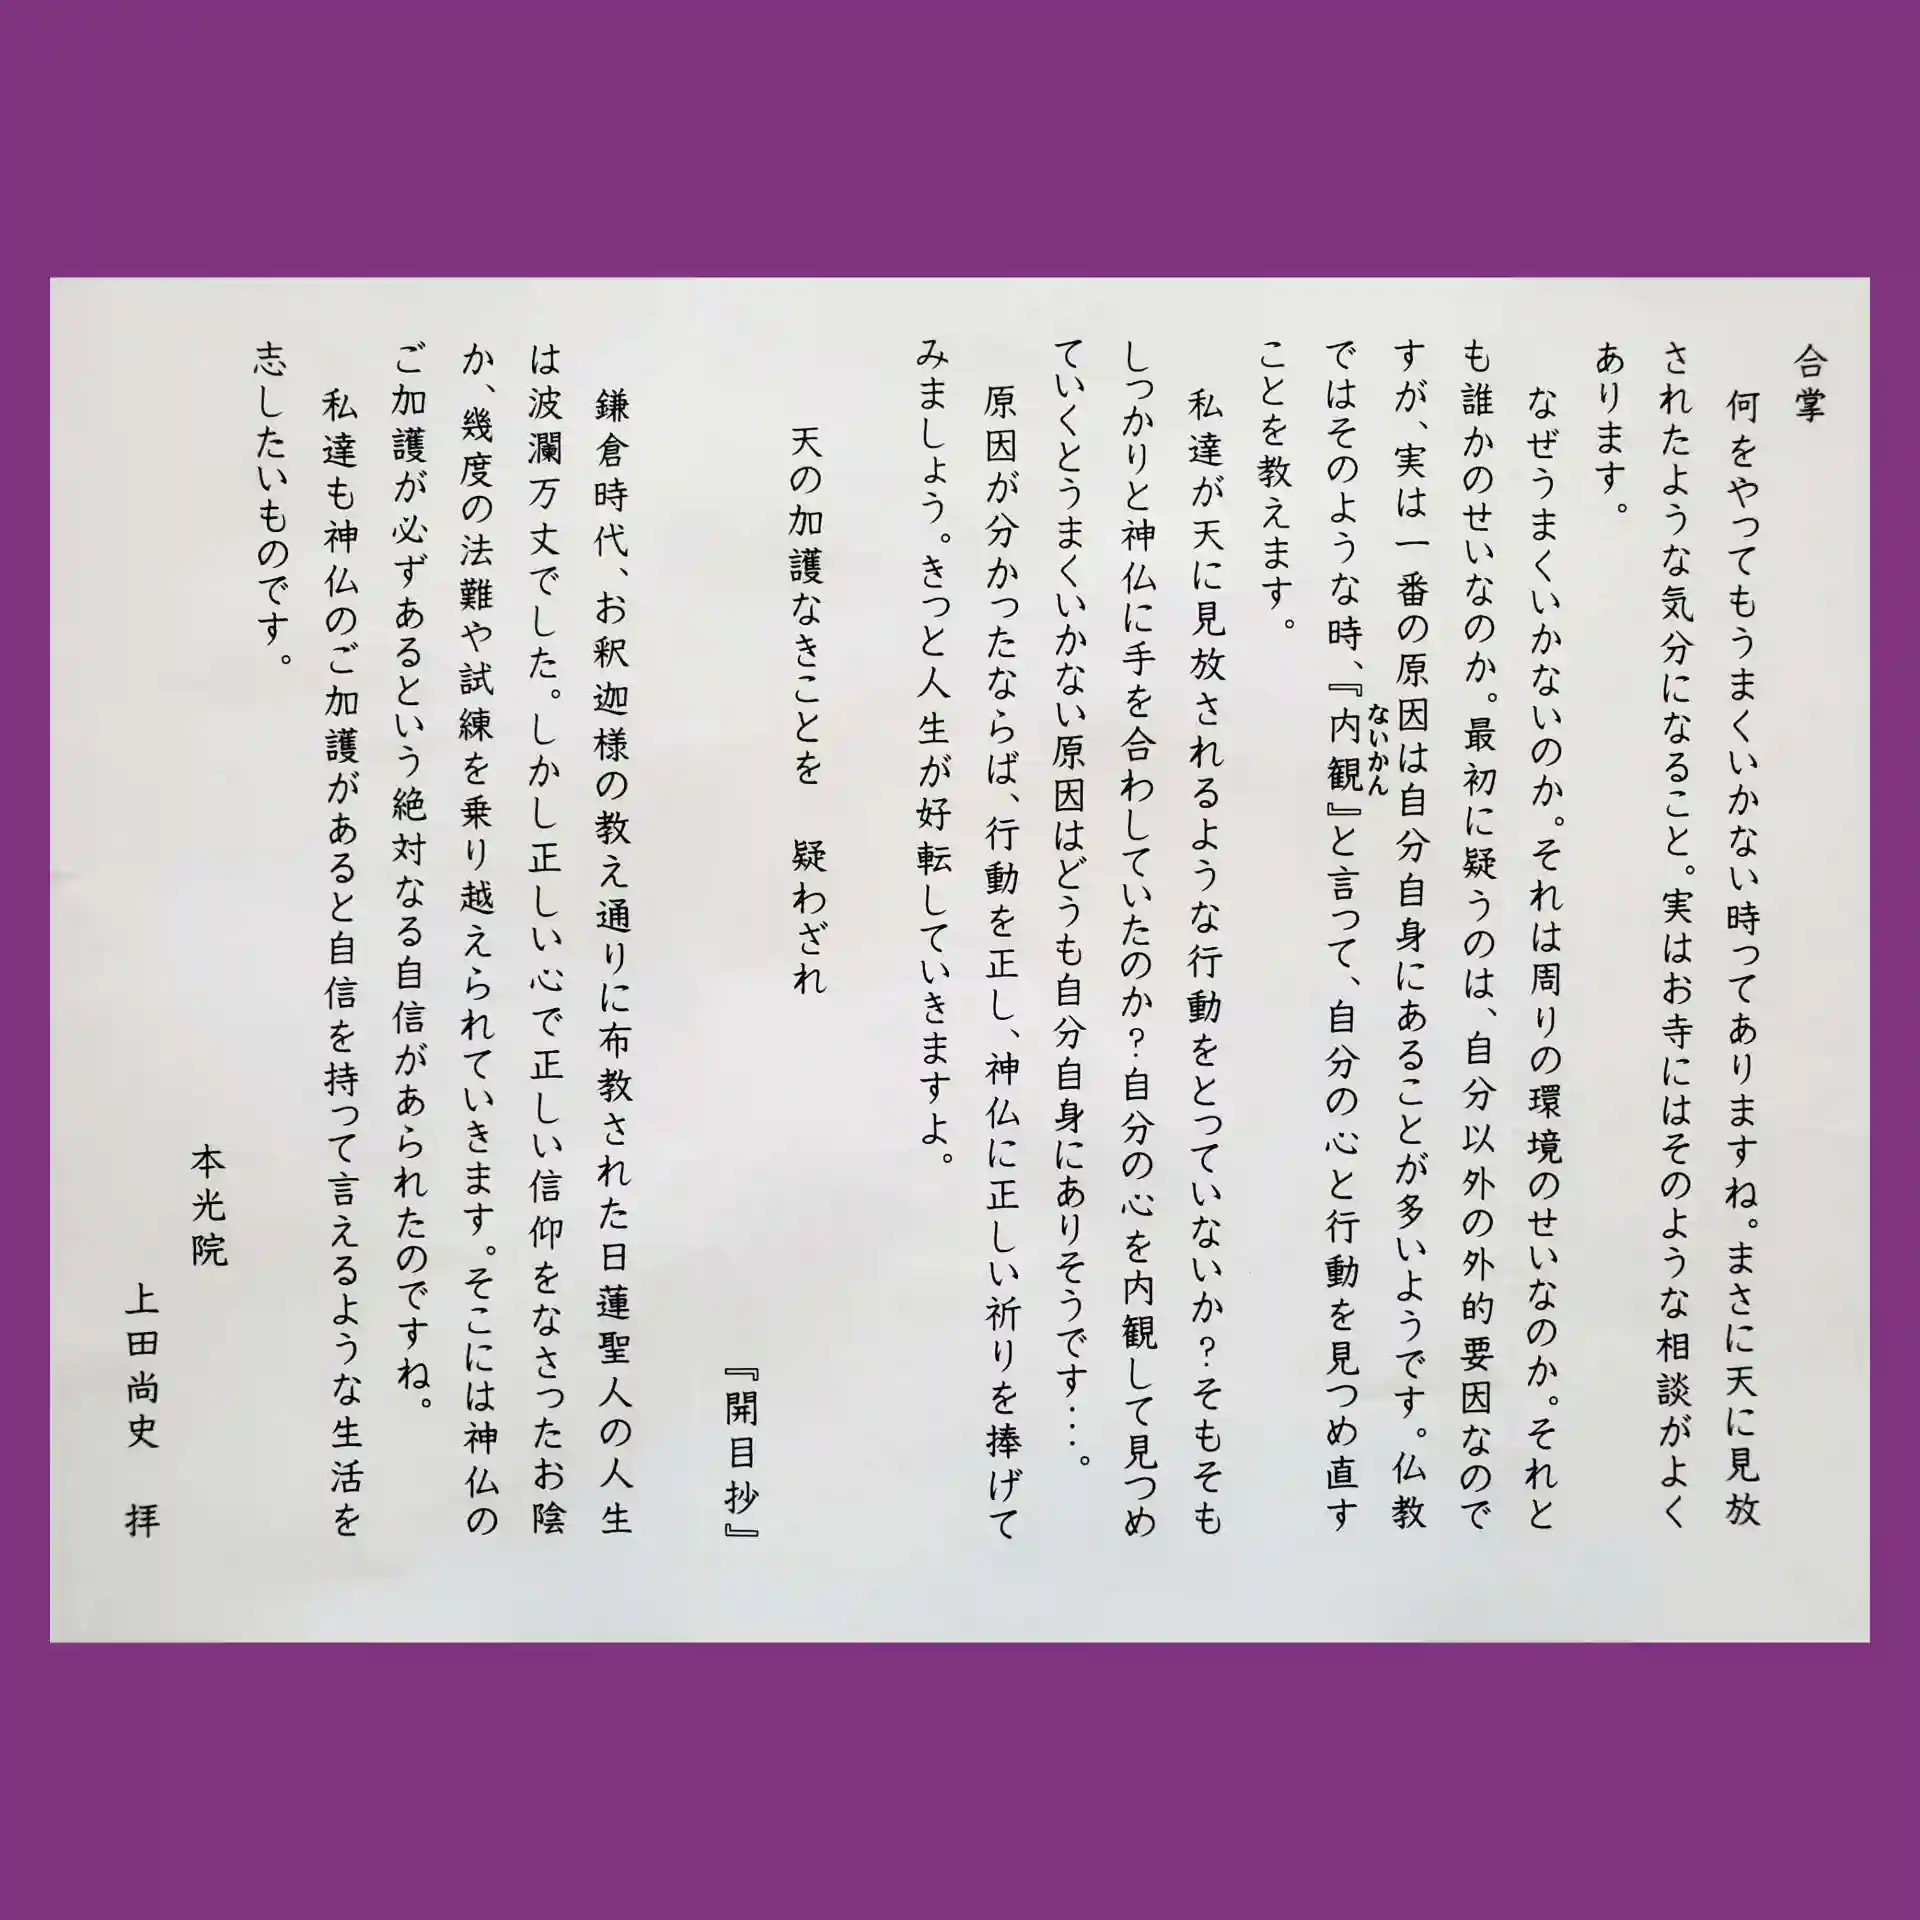 合掌
何をやってもうまくいかない時ってありますね。まさに天に見放
されたような気分になること。実はお寺にはそのような相談がよく
あります。
なぜうまくいかないのか。それは周りの環境のせいなのか。それと
も誰かのせいなのか。最初に疑うのは、自分以外の外的要因なので
すが、実は一番の原因は自分自身にあることが多いようです。仏教
ではそのような時、『内観』と言って、自分の心と行動を見つめ直す
ないかん
ことを教えます。
私達が天に見放されるような行動をとっていないか?そもそも
しっかりと神仏に手を合わしていたのか?自分の心を内観して見つめ
ていくとうまくいかない原因はどうも自分自身にありそうです…。
原因が分かったならば、行動を正し、神仏に正しい祈りを捧げて
みましょう。きっと人生が好転していきますよ。
天の加護なきことを 疑わざれ
『開目抄』
鎌倉時代、お釈迦様の教え通りに布教された日蓮聖人の人生
は波瀾万丈でした。しかし正しい心で正しい信仰をなさったお陰
か、幾度の法難や試練を乗り越えられていきます。そこには神仏の
ご加護が必ずあるという絶対なる自信があられたのですね。
私達も神仏のご加護があると自信を持って言えるような生活を
志したいものです。
本光院
上田尚史 拝